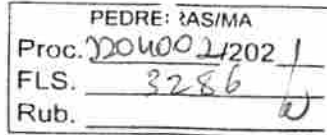 PEDRE: RAS/MA
Proc. 2204002/2021
FLS. 3286
Rub.